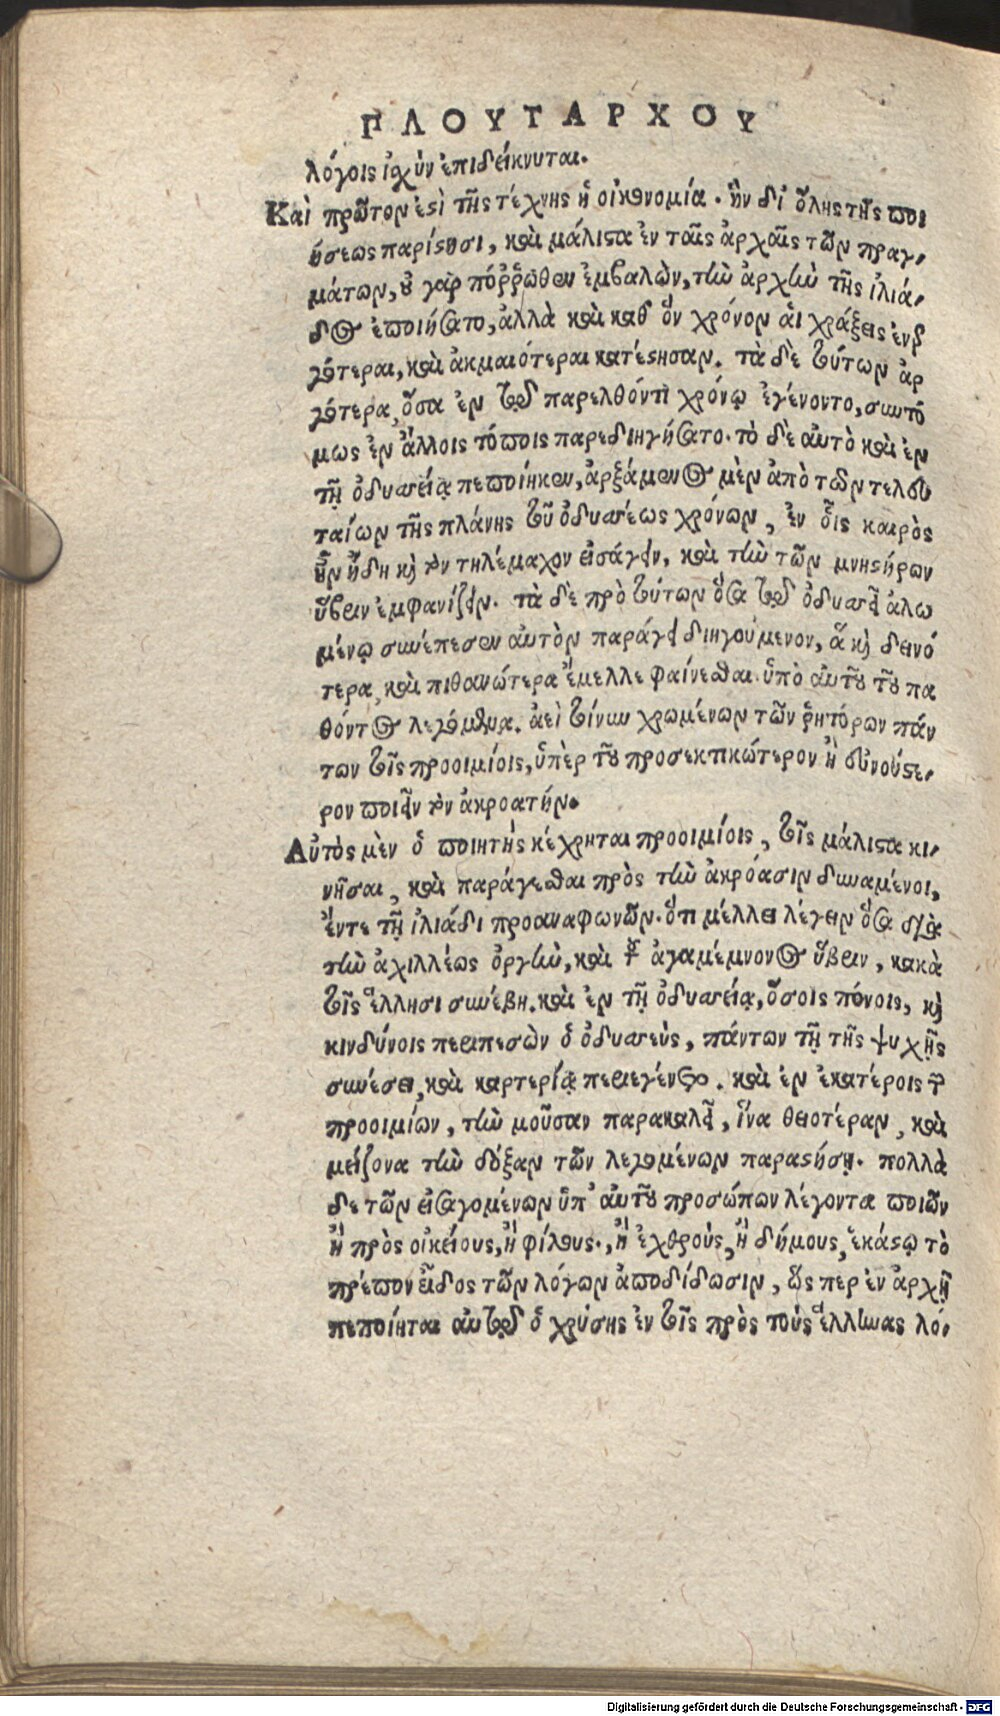 ΠΛΟΥΤΑΡΧΟΥ
λόγοις ἰχὺν ἐπιδείκνυται.
Καὶ πρῶτον ἐστὶ τῆς τέχνης ἡ οἰκονομία. ἣν δι ὅλης τῆς ποι
ήσεως παρίστησι, καὶ μάλιστα ἐν ταῖς ἀρχαῖς τῶν πραγ,
μάτων, οὐ γὰρ πόῤῥωθεν ἐμβαλὼν, τὴν ἀρχὴν τῆς ἰλιά,
δος ἐποιήσατο, ἀλλὰ καὶ καθ ὃν χρόνον αἱ χράξεις ἐνερ
γότεραι, καὶ ἀκμαιότεραι κατέστησαν. τὰ δὲ τούτων ἀρ
γότερα, ὅσα ἐν τῷ παρελθόντι χρόνῳ ἐγένοντο, συντό
μως ἐν ἄλλοις τόποις παρεδιηγήσατο. τὸ δὲ αὐτὸ καὶ ἐν
τῇ ὀδυσσείᾳ πεποίηκεν, ἀρξάμενος μὲν ἀπὸ τῶν τελευ
ταίων τῆς πλάνης τοῦ ὀδυσσέως χρόνων, ἐν οἷς καιρὸς
ἦν ἤδη καὶ τὸν τηλέμαχον εἰσάγειν, καὶ τὴν τῶν μνηστήρων
ὕβριν ἐμφανίζειν. τὰ δὲ πρὸ τούτων ὅσα τῷ ὀδυσσεῖ ἀλω
μένῳ συνέπεσεν αὐτὸν παράγει διηγούμενον, ἃ καὶ δεινό
τερα, καὶ πιθανώτερα ἔμελλε φαίνεσθαι ὑπὸ αὐτοῦ τοῦ πα
θόντος λεγόμενα. ἀεὶ τοίνυν χρωμένων τῶν ῥητόρων πάν
των τοῖς προοιμίοις, ὑπὲρ τοῦ προσεκτικώτερον ἢ εὐνούστε,
ρον ποιεῖν τὸν ἀκροατήν.
Αὐτὸς μὲν ὁ ποιητὴς κέχρηται προοιμίοις, τοῖς μάλιστα κι,
νῆσαι, καὶ παράγεσθαι πρὸς τὴν ἀκρόασιν δυναμένοι,
ἔντε τῇ ἰλιάδι προαναφωνῶν. ὅτι μέλλει λέγειν ὅσα διὰ
τὴν ἀχιλλέως ὀργὴν, καὶ τὴν ἀγαμέμνονος ὕβριν, κακὰ
τοῖς ἕλλησι συνέβη. καὶ ἐν τῇ ὀδυσσείᾳ, ὅσοις πόνοις, καὶ
κινδύνοις περιπεσὼν ὁ ὀδυσσεὺς, πάντων τῇ τῆς ψυχῆς
συνέσει, καὶ καρτερίᾳ περιεγένετο. καὶ ἐν ἑκατέροις τῶν
προοιμίων, τὴν μοῦσαν παρακαλεῖ, ἵνα θειοτέραν, καὶ
μείζονα τὴν δόξαν τῶν λεγομένων παραστήσῃ. πολλὰ
δε τῶν εἰσαγομένων ὑπ' αὐτοῦ προσώπων λέγοντα ποιῶν
ἢ πρὸς οἰκείους, ἢ φίλους., ἢ ἐχθροὺς, ἢ δήμους, ἑκάστῳ τὸ
πρέπον εἶδος τῶν λόγων ἀποδίδωσιν, ὥς περ ἐν ἀρχῇ
πεποίηται αὐτῷ ὁ χρύσης ἐν τοῖς πρὸς τοὺς ἕλληνας λό,
Digitalisierung gefördert durch die Deutsche Forschungsgemeinschaft - DFG